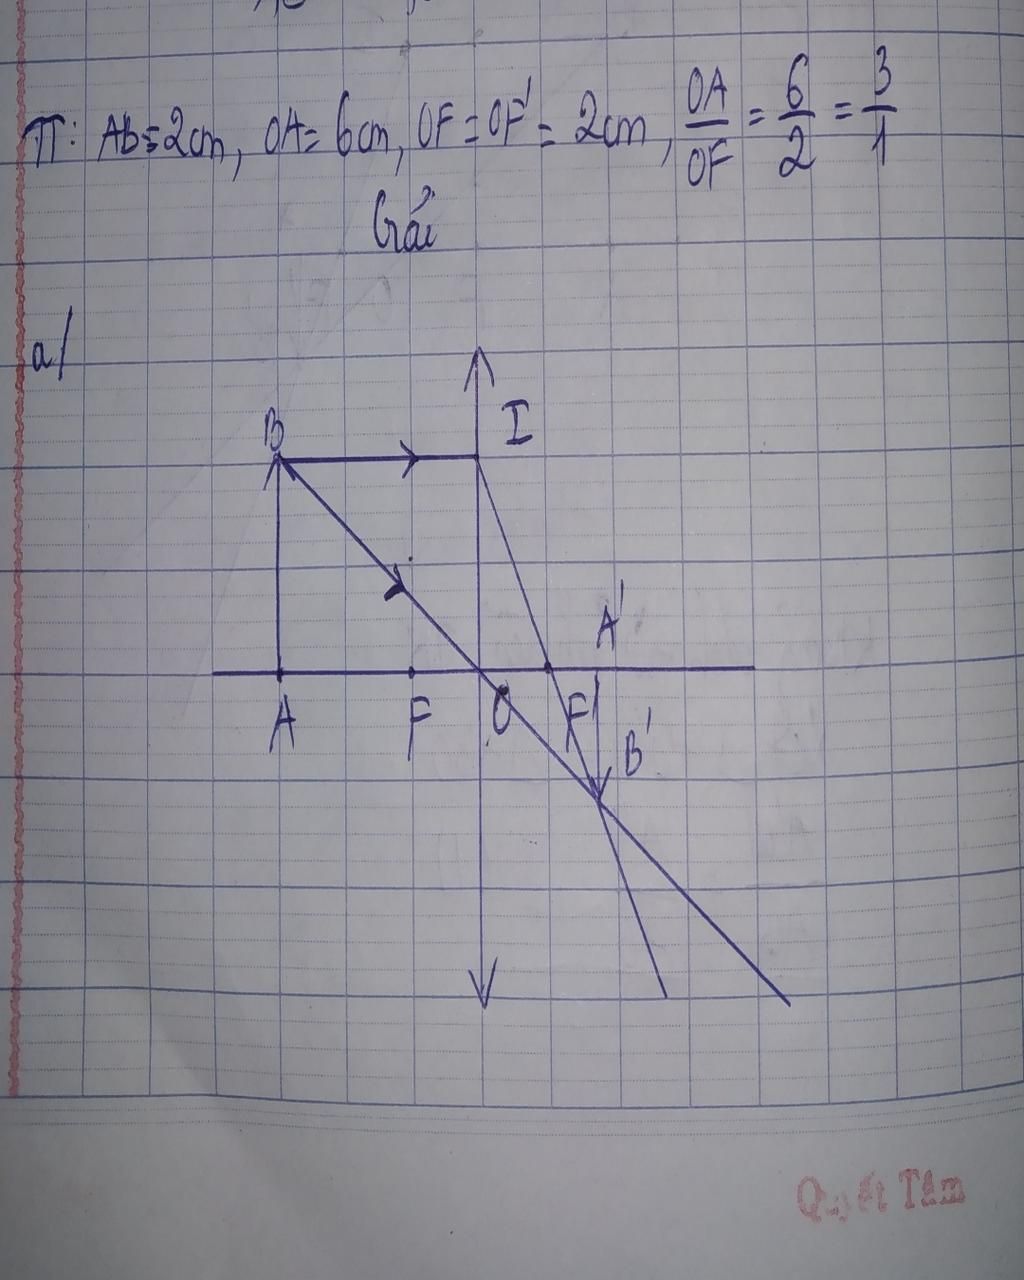 TT: AB = 2cm, OA = 6cm, OF = OF' = 2cm, OA/OF = 6/2 = 3/1
Giải
a/
I
B
A'
A F O F' B'
Quyết Tâm